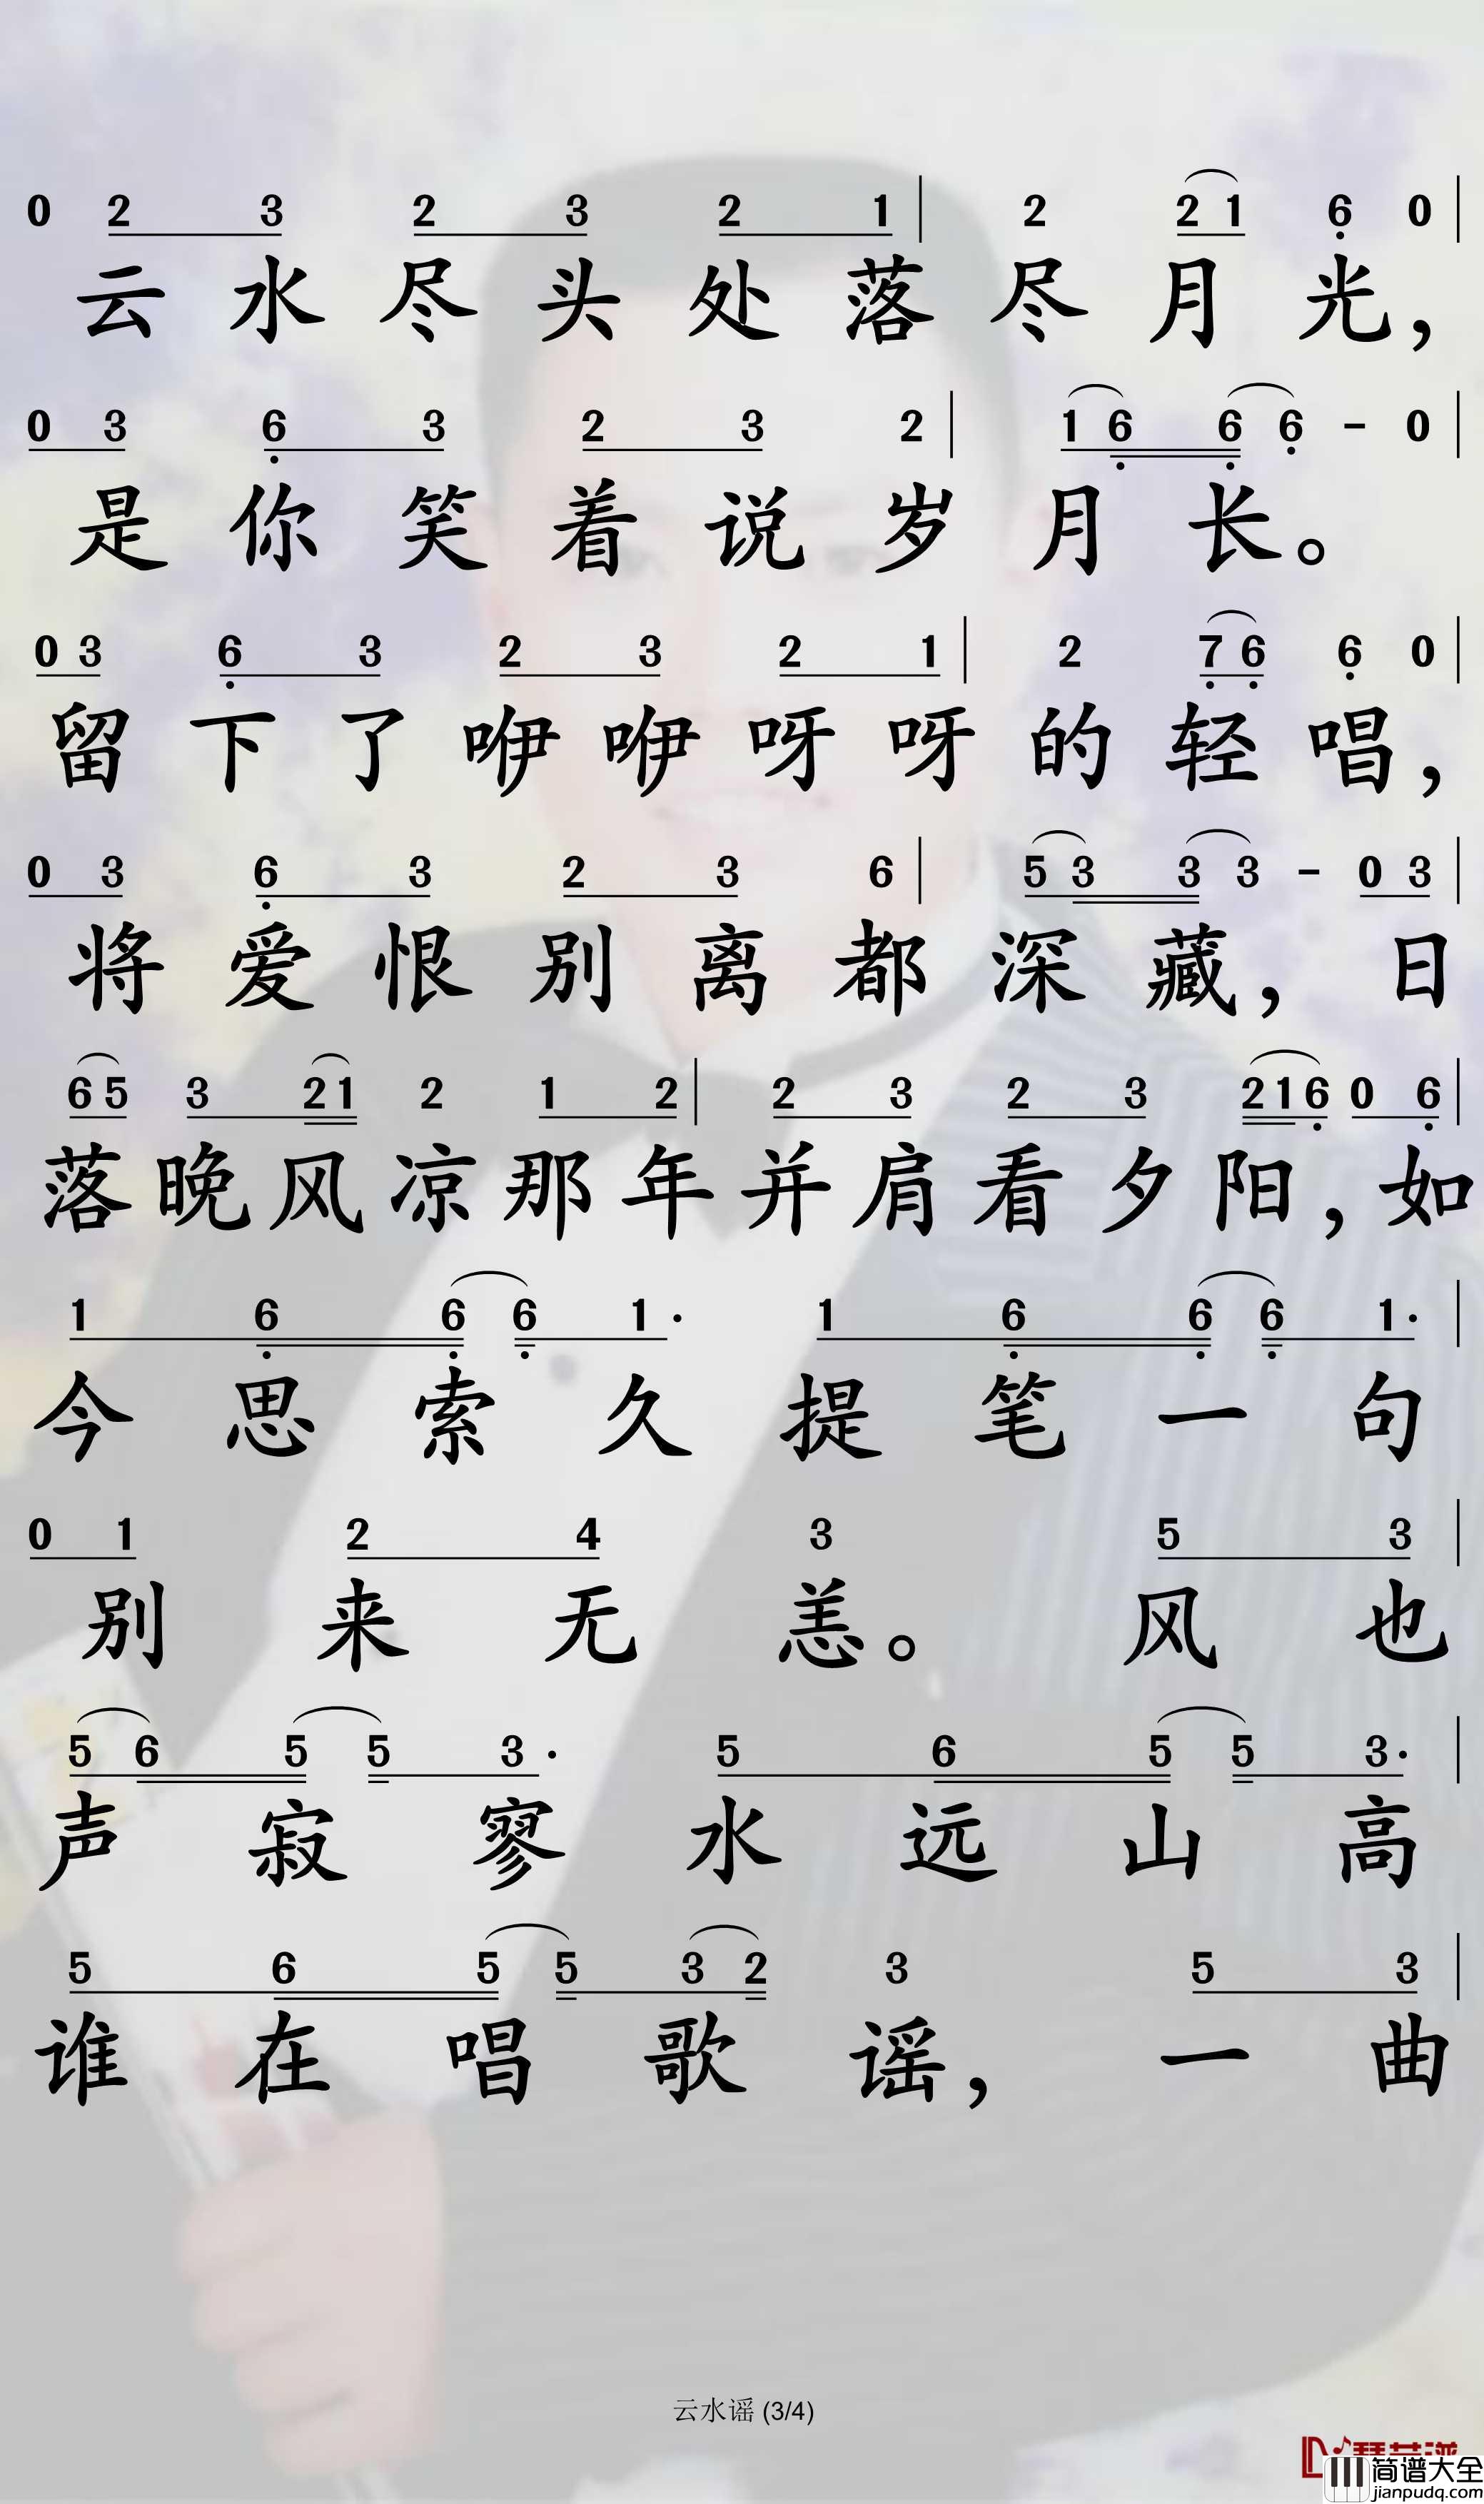 0 2 3 2 3 2 1 | 2 2 1 6 0 |
云水尽头处落尽月光，
0 3 6 3 2 3 2 | 1 6 6 6 - 0 |
是你笑着说岁月长。
0 3 6 3 2 3 2 1 | 2 7 6 6 0 |
留下了咿咿呀呀的轻唱，
0 3 6 3 2 3 6 | 5 3 3 3 - 0 3 |
将爱恨别离都深藏，日
6 5 3 2 1 2 1 2 | 2 3 2 3 2 1 6 0 6 |
落晚风凉那年并肩看夕阳，如
1 6 6 6 1· 1 6 6 6 1· |
今思索久提笔一句
0 1 2 4 3 5 3 |
别来无恙。风也
5 6 5 5 3· 5 6 5 5 3· |
声寂寥水远山高
5 6 5 5 3 2 3 5 3 |
谁在唱歌谣，一曲
云水谣 (3/4)
简谱大全
jianpudq.com